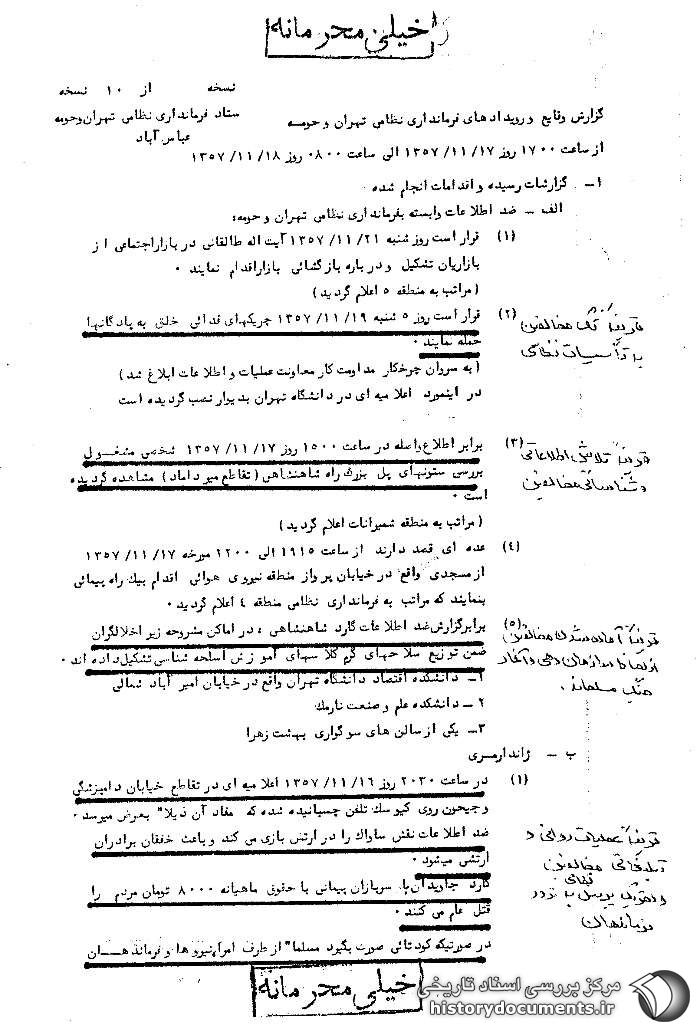 خیلی محرمانه
نسخه از ۱۰ نسخه
ستاد فرمانداری نظامی تهران وحومه
عباس آباد
گزارش وقایع و رویدادهای فرمانداری نظامی تهران و حومه
از ساعت ۱۷۰۰ روز ۱۳۵۷/۱۱/۱۷ الی ساعت ۰۸۰۰ روز ۱۳۵۷/۱۱/۱۸
۱- گزارشات رسیده و اقدامات انجام شده
الف - ضد اطلاعات وابسته بفرمانداری نظامی تهران و حومه:
(۱) قرار است روز شنبه ۱۳۵۷/۱۱/۲۱ آیت اله طالقانی در بازار اجتماعی از
بازاریان تشکیل و در باره بازگشائی بازار اقدام نمایند .
(مراتب به منطقه ۵ اعلام گردید)
(۲) قرار است روز ۵ شنبه ۱۳۵۷/۱۱/۱۹ چریکهای فدائی خلق به پادگانها
حمله نمایند .
(به سروان چرخکار مداومت کار معاونت عملیات و اطلاعات ابلاغ شد)
در اینمورد اعلامیه ای در دانشگاه تهران بدیوار نصب گردیده است
قرینهٔ تک مخالفین
به تأسیسات نظامی
(۳) برابر اطلاع واصله در ساعت ۱۵۰۰ روز ۱۳۵۷/۱۱/۱۷ شخصی مشغول
بررسی ستونهای پل بزرگ راه شاهنشاهی (تقاطع میرداماد) مشاهده گردیده
است .
(مراتب به منطقه شمیرانات اعلام گردید)
قرینهٔ تلاش اطلاعاتی
و شناسائی مخالفین
(۴) عده ای قصد دارند از ساعت ۱۹۱۵ الی ۲۲۰۰ مورخه ۱۳۵۷/۱۱/۱۷
از مسجدی واقع در خیابان پرواز منطقه نیروی هوائی اقدام بیک راه پیمائی
بنمایند که مراتب به فرمانداری نظامی منطقه ۴ اعلام گردید .
(۵) برابر گزارش ضد اطلاعات گارد شاهنشاهی ، در اماکن مشروحه زیر اخلالگران
ضمن توزیع سلاحهای گرم کلاسهای آموزش اسلحه شناسی تشکیل داده اند .
۱- دانشکده اقتصاد دانشگاه تهران واقع در خیابان امیرآباد شمالی
۲- دانشکده علم و صنعت نارمک
۳- یکی از سالن های سوگواری بهشت زهرا
قرینهٔ آماده شدن مخالفین
از لحاظ سازمان دهی و آغاز
جنگ مسلحانه .
ب - ژاندارمری
(۱) در ساعت ۲۰۳۰ روز ۱۳۵۷/۱۱/۱۶ اعلامیه ای در تقاطع خیابان دامپزشکی
و جیحون روی کیوسک تلفن چسبانیده شده که مفاد آن ذیلا" بعرض میرسد .
ضد اطلاعات نقش ساواک را در ارتش بازی می کند و باعث خفقان برادران
ارتشی میشود .
گارد جاویدان با سربازان پیمانی با حقوق ماهیانه ۸۰۰۰ تومان مردم را
قتل عام می کنند .
در صورتیکه کودتائی صورت بگیرد مسلما" از طرف امراء نیروها و فرماندهان
قرینهٔ عملیات روانی و
تبلیغاتی مخالفین
خیلی محرمانه
مرکز بررسی اسناد تاریخی
historydocuments.ir